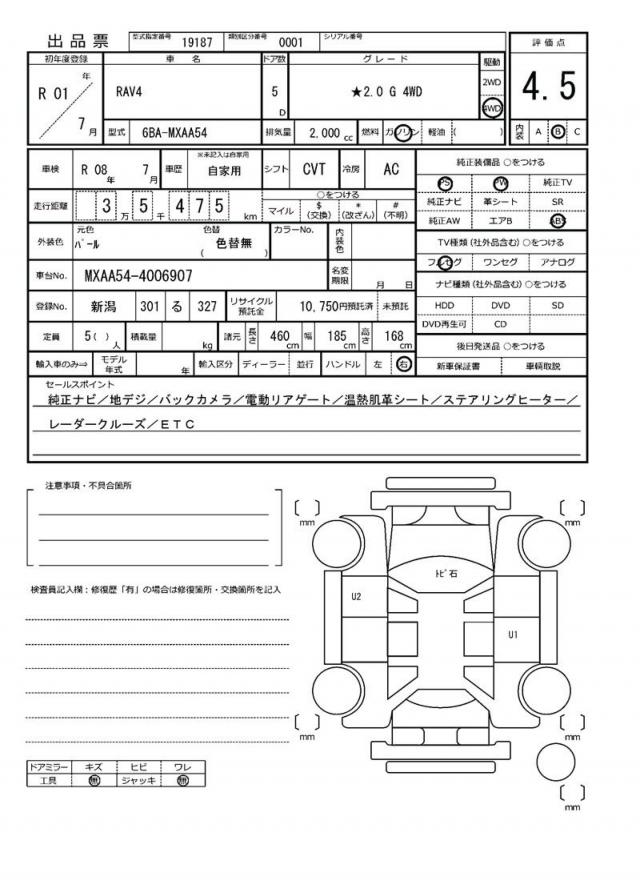 出品票 型式指定番号 19187 類別区分番号 0001 シリアル番号
評価点
4.5
初年度登録 車名 ドア数 グレード 駆動
R 01 年 7 月 RAV4 5 D ★2.0 G 4WD 2WD
4WD
型式 6BA-MXAA54 排気量 2,000 cc 燃料 ガソリン 軽油 ( ) 内装 A B C
車検 R 08 年 7 月 車歴 ※未記入は自家用 自家用 シフト CVT 冷房 AC
走行距離 3 万 5 千 4 7 5 km
○をつける
マイル $ (交換) * (改ざん) # (不明)
外装色 元色 パール 色替 ( 色替無 ) カラーNo. 内装色
車台No. MXAA54-4006907 名変期限 月 日
登録No. 新潟 301 る 327 リサイクル預託金 10,750円預託済 未預託
定員 5( )人 積載量 kg 諸元 長さ 460 cm 幅 185 cm 高さ 168 cm
輸入車のみ⇒ モデル年式 年 輸入区分 ディーラー 並行 ハンドル 左 右
純正装備品 ○をつける
PS PW 純正TV
純正ナビ 革シート SR
純正AW エアB ABS
TV種類(社外品含む)○をつける
フルセグ ワンセグ アナログ
ナビ種類(社外品含む)○をつける
HDD DVD SD
DVD再生可 CD
後日発送品 ○をつける
新車保証書 車輌取説
セールスポイント
純正ナビ/地デジ/バックカメラ/電動リアゲート/温熱肌革シート/ステアリングヒーター/
レーダークルーズ/ETC
注意事項・不具合箇所
検査員記入欄:修復歴「有」の場合は修復箇所・交換箇所を記入
ドアミラー キズ ヒビ ワレ
工具 無 ジャッキ 無
mm
mm
トビ石
U2
U1
mm
mm
mm